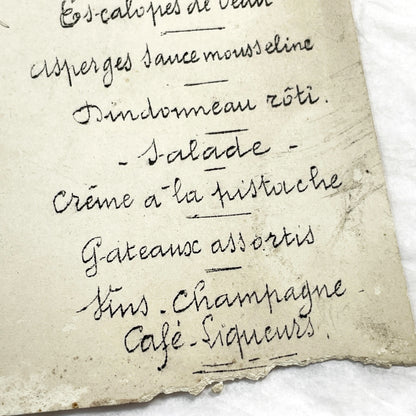 Escalopes de Veau
Asperges Sauce mousseline
Dindonneau rôti.
- Salade -
Crème à la pistache
Gateaux assortis
Vins - Champagne
Café - Liqueurs.